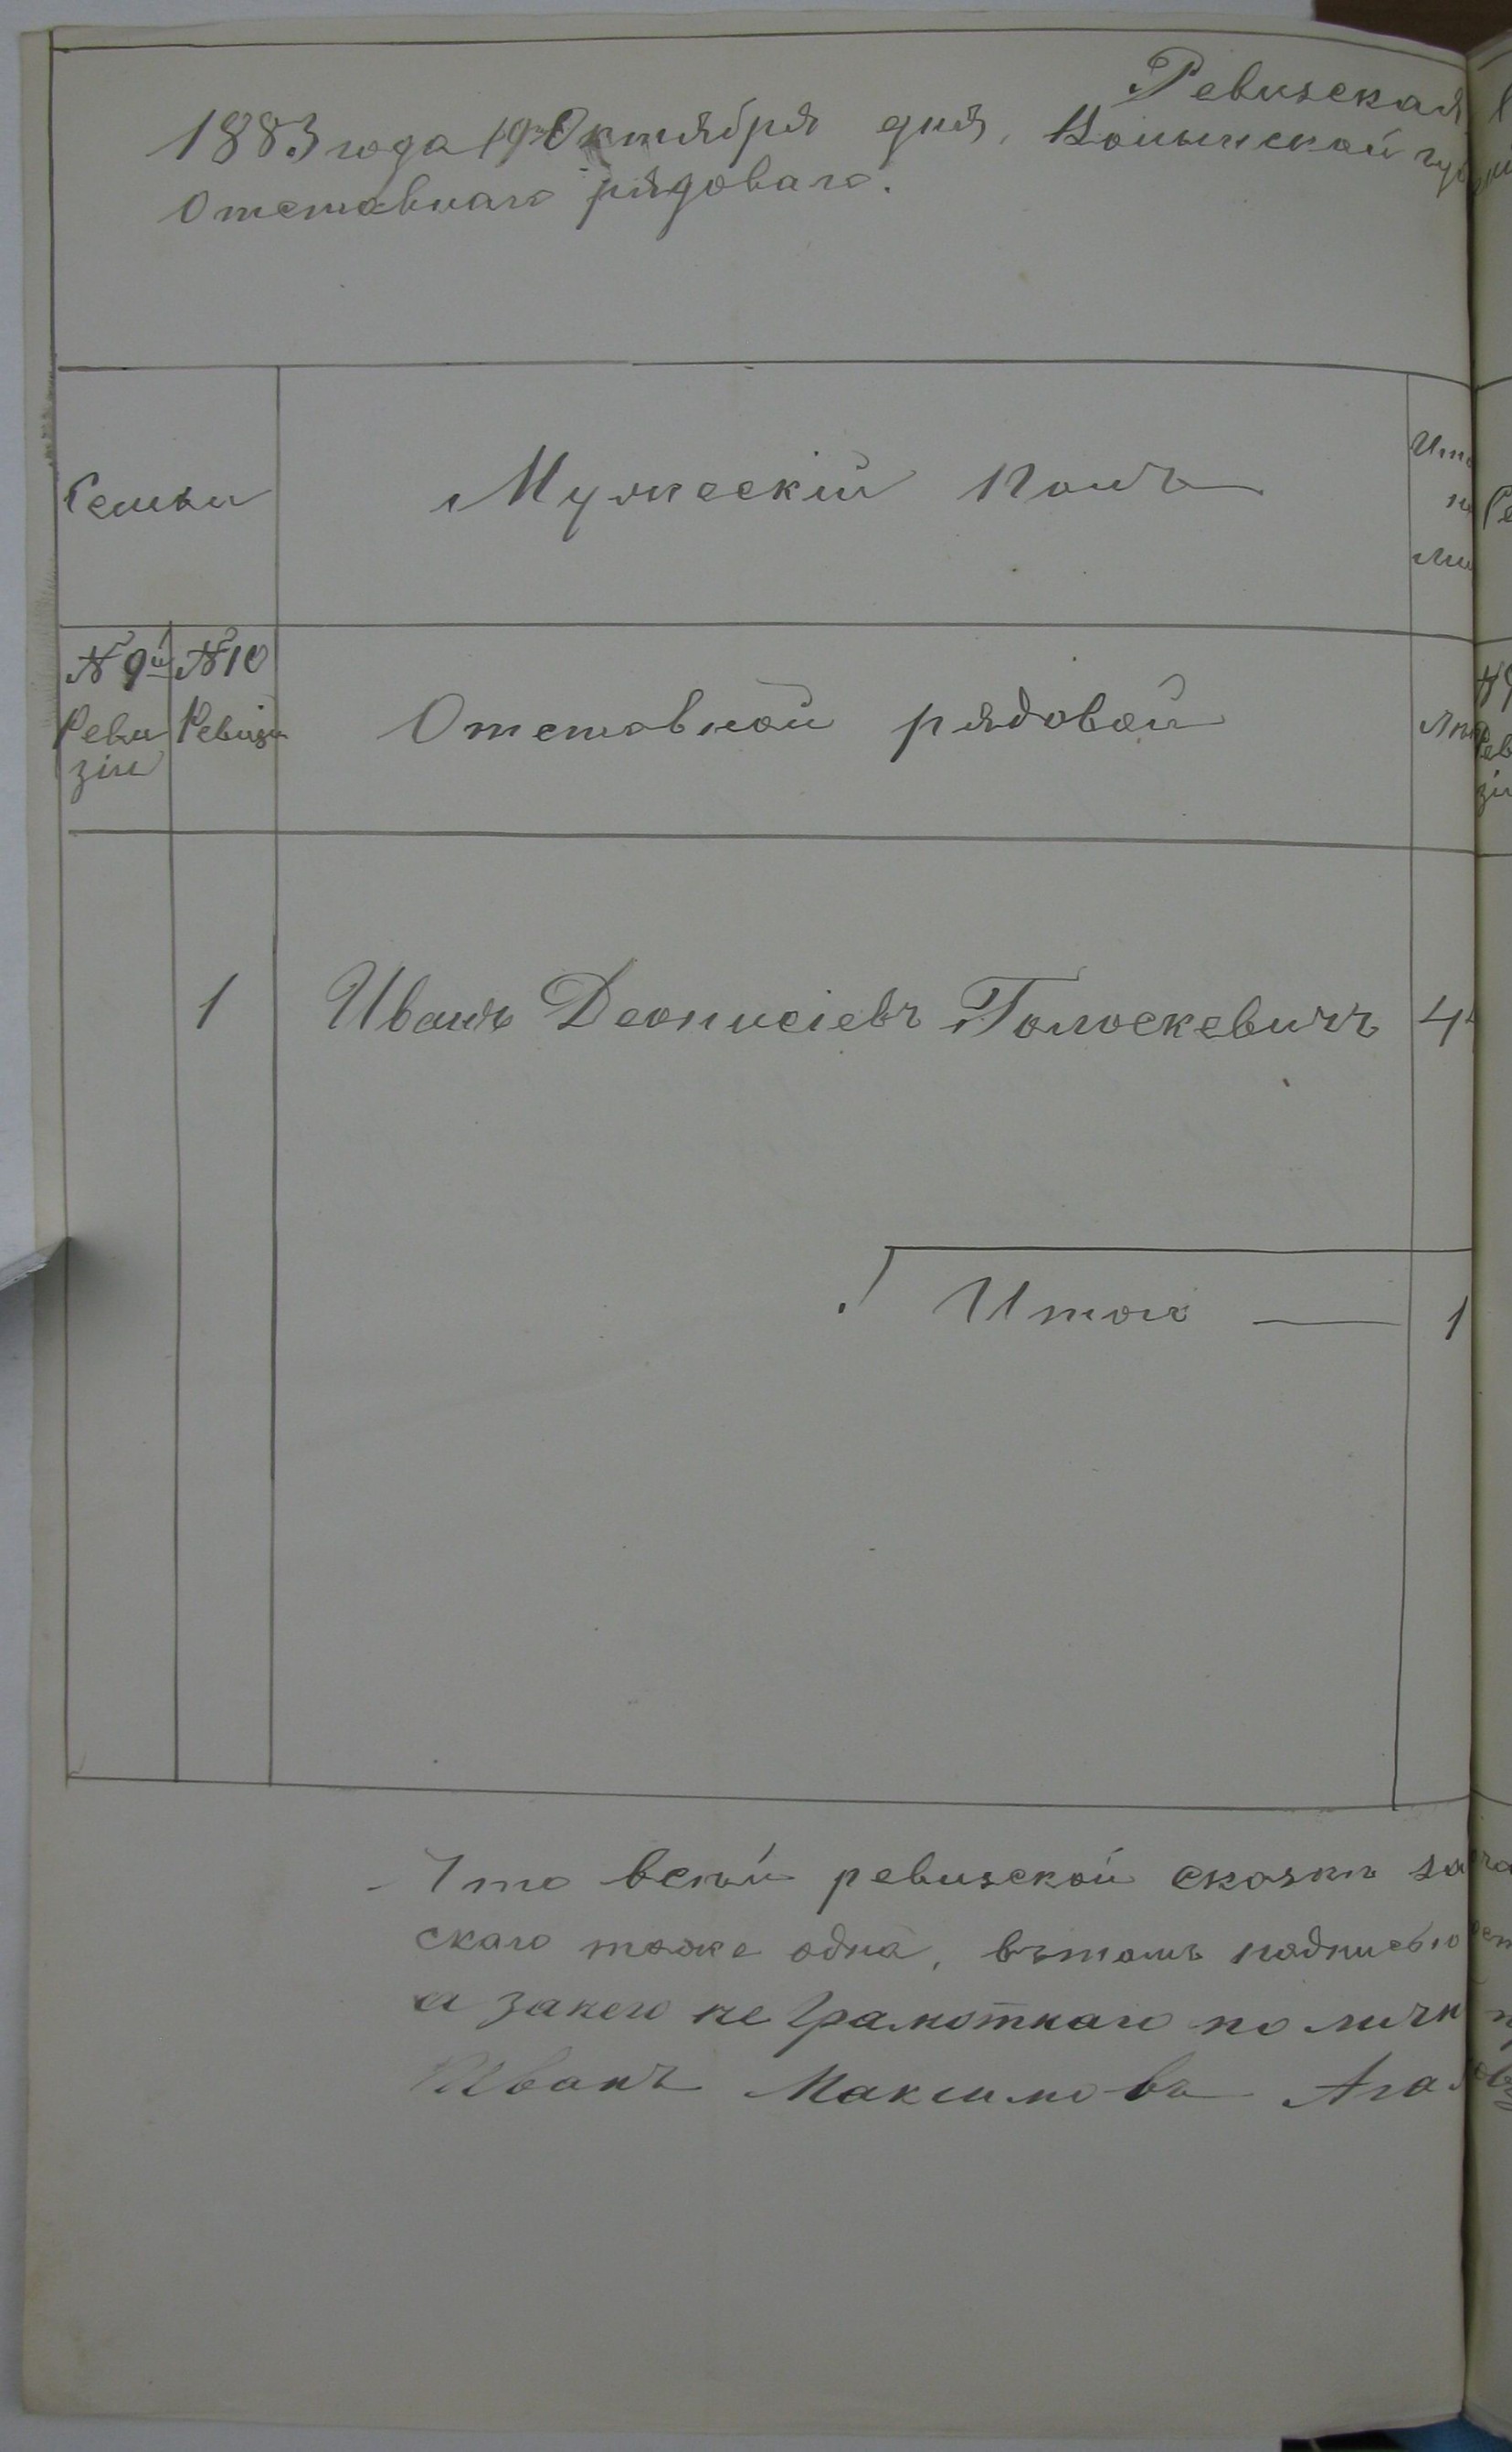 Ревизская
1883 года 19 Октября дня, Волынской гу
Отставнаго рядоваго.
Семьи
Мужескій полъ
N 9й
N 10
Реви
зіи
Ревизіи
Отставной рядовой
1 Иванъ Деонисіевъ Голоскевичъ 44
Итого — 1
Что всей ревизской сказкѣ за
скаго тоже одна, вътомъ подписью
а занего не Грамотнаго по личн
Иванъ Максимовъ Ага